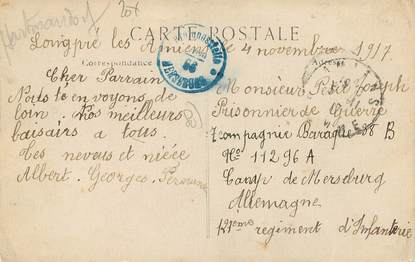 CARTE POSTALE
Longpré les Amiens le 4 novembre 1917
Correspondance
Cher Parrain
Nous t'en voyons de
loin. Nos meilleurs
baisairs a tous.
Tes neveus et niéce
Albert. Georges.
Monsieur Petit Joseph
Prisonnier de Guerre
7 compagnie Baraque 38 B
No 11296 A
Camp de Mersburg
Allemagne
regiment d'Infanterie